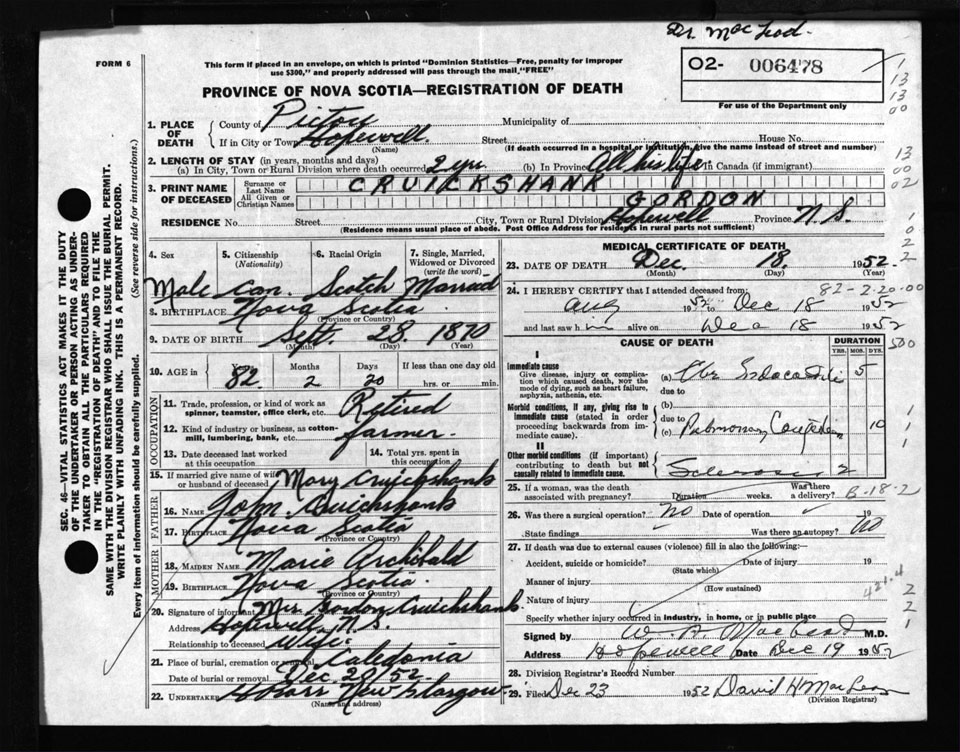 Dr. MacLeod.
FORM 6
This form if placed in an envelope, on which is printed "Dominion Statistics—Free, penalty for improper
use $300," and properly addressed will pass through the mail "FREE"
O2- 006478
For use of the Department only
PROVINCE OF NOVA SCOTIA—REGISTRATION OF DEATH
1. PLACE OF DEATH
County of Pictou Municipality of
If in City or Town Hopewell. Street House No.
(Name) (If death occurred in a hospital or institution, give name instead of street and number)
2. LENGTH OF STAY (in years, months and days)
(a) In City, Town or Rural Division where death occurred 2 yrs (b) In Province All his life In Canada (if immigrant)
3. PRINT NAME OF DECEASED
Surname or Last Name CRUICKSHANK
All Given or Christian Names GORDON
RESIDENCE No. Street City, Town or Rural Division Hopewell Province N.S.
(Residence means usual place of abode. Post Office Address for residents in rural parts not sufficient)
4. Sex 5. Citizenship (Nationality) 6. Racial Origin 7. Single, Married, Widowed or Divorced (write the word)
Male Can. Scotch Married
8. BIRTHPLACE Nova Scotia
(Province or Country)
9. DATE OF BIRTH Sept. 28 1870
(Month) (Day) (Year)
10. AGE in Months Days If less than one day old
82 2 20 hrs. or min.
OCCUPATION
11. Trade, profession, or kind of work as
spinner, teamster, office clerk, etc. Retired
12. Kind of industry or business, as cotton-
mill, lumbering, bank, etc. farmer.
13. Date deceased last worked at this occupation 14. Total yrs. spent in this occupation
15. If married give name of wife or husband of deceased Mary Cruickshank
FATHER
16. NAME John Cruickshank
17. BIRTHPLACE Nova Scotia
(Province or Country)
MOTHER
18. MAIDEN NAME Marie Archibald
19. BIRTHPLACE Nova Scotia.
(Province or Country)
20. Signature of informant Mrs Gordon Cruickshank.
Address Hopewell, N.S.
Relationship to deceased Wife.
21. Place of burial, cremation or removal Caledonia
Date of burial or removal Dec. 20/52.
22. UNDERTAKER New Glasgow
(Name and address)
MEDICAL CERTIFICATE OF DEATH
23. DATE OF DEATH Dec. 18. 1952.
(Month) (Day) (Year)
82-2-20-00
24. I HEREBY CERTIFY that I attended deceased from:
Aug 1952 to Dec 18 1952
and last saw him alive on Dec 18 1952
CAUSE OF DEATH DURATION
YRS. MOS. DYS.
I
Immediate cause
Give disease, injury or complication which caused death, NOT the mode of dying, such as heart failure, asphyxia, asthenia, etc.
(a) 5
due to
Morbid conditions, if any, giving rise to immediate cause (stated in order proceeding backwards from immediate cause).
(b)
due to
(c) Pulmonary 10
II
Other morbid conditions (if important) contributing to death but not causally related to immediate cause.
Sclerosis 2
25. If a woman, was the death associated with pregnancy? Duration weeks. Was there a delivery?
B-18-2
26. Was there a surgical operation? No Date of operation 19
State findings Was there an autopsy? No
27. If death was due to external causes (violence) fill in also the following:—
Accident, suicide or homicide? Date of injury 19
(State which)
Manner of injury
(How sustained)
Nature of injury
Specify whether injury occurred in industry, in home, or in public place
Signed by W. A. MacLeod M.D.
Address Hopewell Date Dec 19 1952
28. Division Registrar's Record Number
29. Filed Dec 23 1952 David H MacLean
(Division Registrar)
SEC. 46—VITAL STATISTICS ACT MAKES IT THE DUTY
OF THE UNDERTAKER OR PERSON ACTING AS UNDER-
TAKER TO OBTAIN ALL THE PARTICULARS REQUIRED
IN THE "REGISTRATION OF DEATH" AND TO FILE THE
SAME WITH THE DIVISION REGISTRAR WHO SHALL ISSUE THE BURIAL PERMIT.
WRITE PLAINLY WITH UNFADING INK. THIS IS A PERMANENT RECORD.
Every item of information should be carefully supplied. (See reverse side for instructions.)